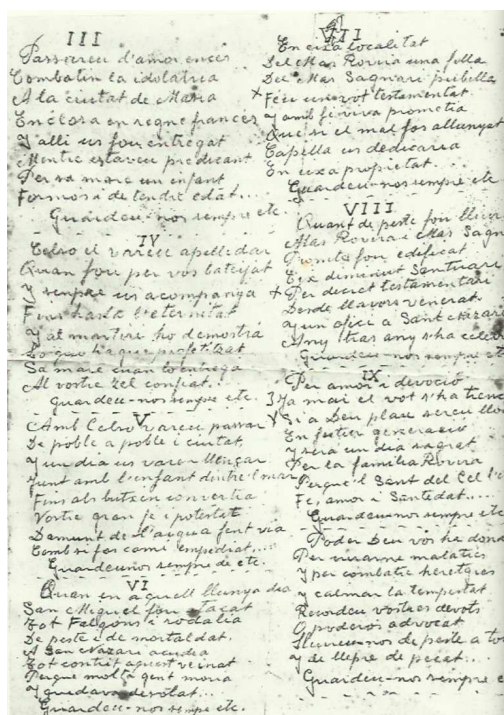 III
Passareu d'amor encès
Combatin la idolatria
A la ciutat de Maria
Enclosa en regne francés
Y alli us fou entregat
Mentre estaveu predicant
Per sa mare un infant
Formós i de tendre edat...
Guardeu-nos sempre etc.
IV
Celso el vareu apelledar
Quan fou per vos batejat
Y sempre us acompanyá
Fins hasta l'eternitat
Y al martiri ho demostrá
Lo que hague profetitzat
Sa mare cuan lo entregá
Al vostre zel confiat...
Guardeu-nos sempre etc.
V
Amb Celso vareu passar
De poble a poble i ciutat
Y un dia us varen llençar
Junt amb l'infant dintre l'mar
Fins als butxin convertia
Vostre gran fe i potestat
Damunt de l'aigua fent via
Com si fos camí empedrat....
Guardeu-nos sempre de etc.
VI
Quan en aquell llunya dia
San Miquel fou atacat
Tot Falgons i rodalia
De peste i de mortaldat.
A San Nazari acudia
Tot contrit aquest veinat
Perque molta gent moria
Y quedava desolat...
Guardeu-nos sempre etc.
VII
En eixa localitat
Del Mas Rovira una filla
Del Mas Sagnari pubilla
x Feu un vot testamentat
Y amb fe viva prometia
Que si el mal fos allunyat
Capella us dedicaria
En eixa propietat...
Guardeu-nos sempre etc
VIII
Quant de peste fou lliure
Mas Rovira i Mas Sagn
Promte fou edificat
Eix diminut Santuari
+ Per decret testamentari
Desde llavors venerat
Y un ofici a Sant Nazari
Any tras any s'ha celeb
Guardeu-nos sempre etc
IX
Per amor i devoció
Ja mai el vot s'ha trenc
Si a Deu plau sereu llo
En futter generació
Y sera un dia sagrat
Per la familia Rovira
Perque l Sant del Cel l
Fe, amor i Santedat.....
Guardeu-nos sempre etc
Poder Deu vos ha dona
Per curarne malaties
Y per combatre heretgies
Y calmar la tempestat
Recordeu vostres devots
O poderos advocat
Lliureu-nos de peste a to
Y de llepre de pecat...
Guardeu-nos sempre e